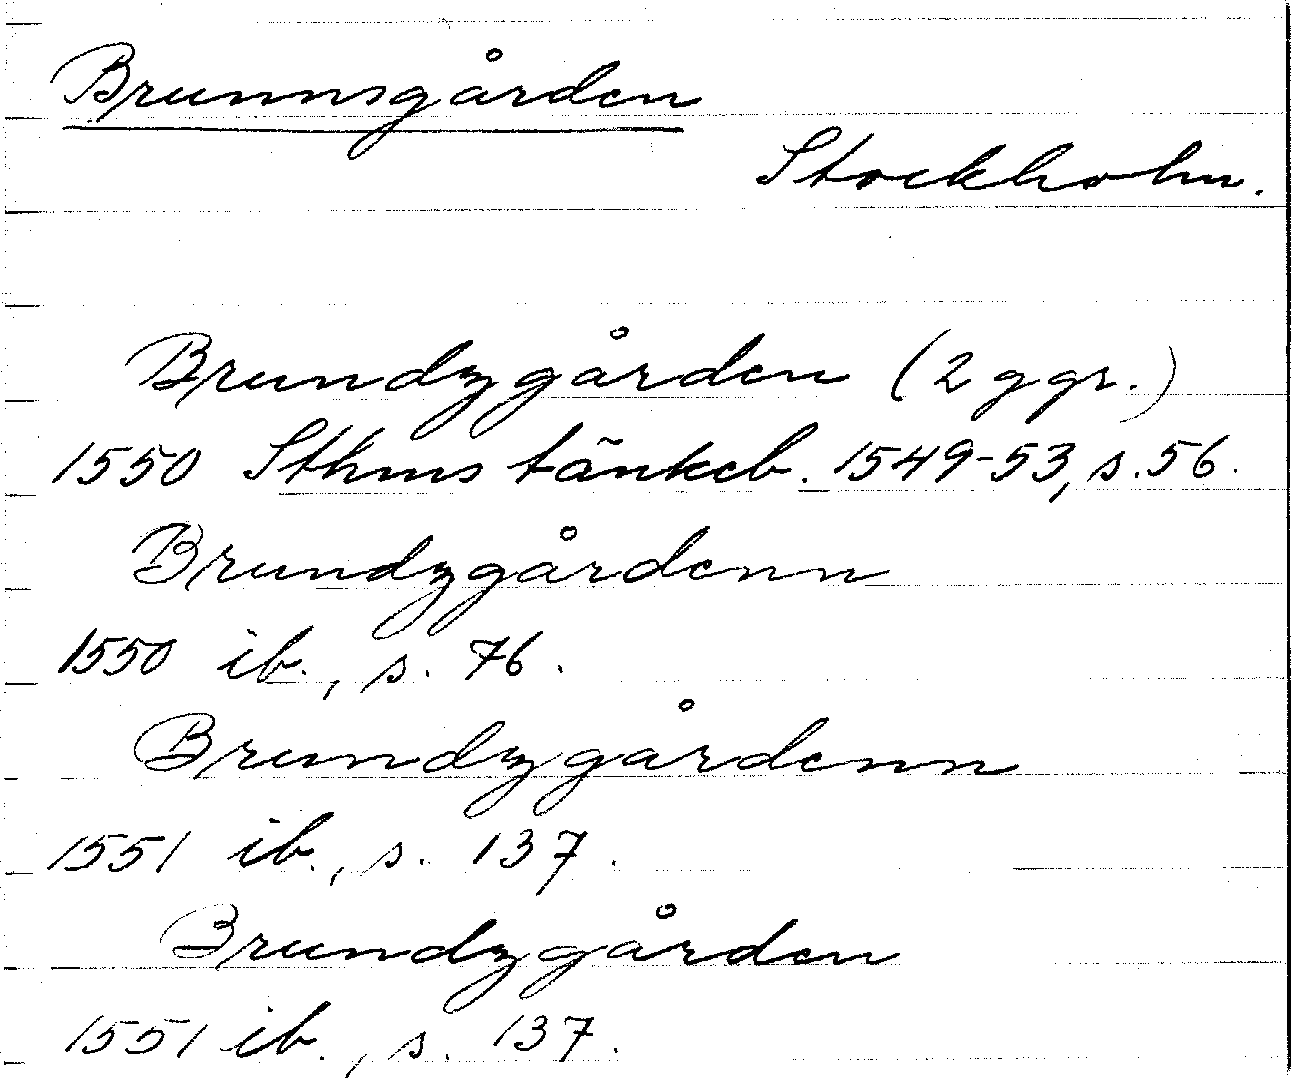 Brunnsgården
Stockholm.
Brundzgården (2 ggr.)
1550 Sthms tänkeb. 1549-53, s. 56.
Brundzgårdenn
1550 ib., s. 76.
Brundzgårdenn
1551 ib., s. 137.
Brundzgården
1551 ib., s. 137.